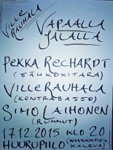 VILLE
RAUHALA
VAPAALLA
JALALLA
PEKKA RECHARDT
(SÄHKÖKITARA)
VILLE RAUHALA
(KONTRABASSO)
SIMO LAIHONEN
(RUMMUT)
17.12.2015 KLO 20
HUURUPIILO
KALEVA)